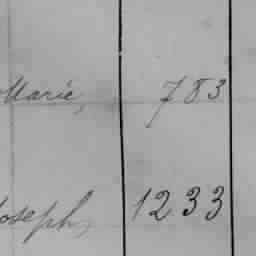 Marie, 783
Joseph, 1233